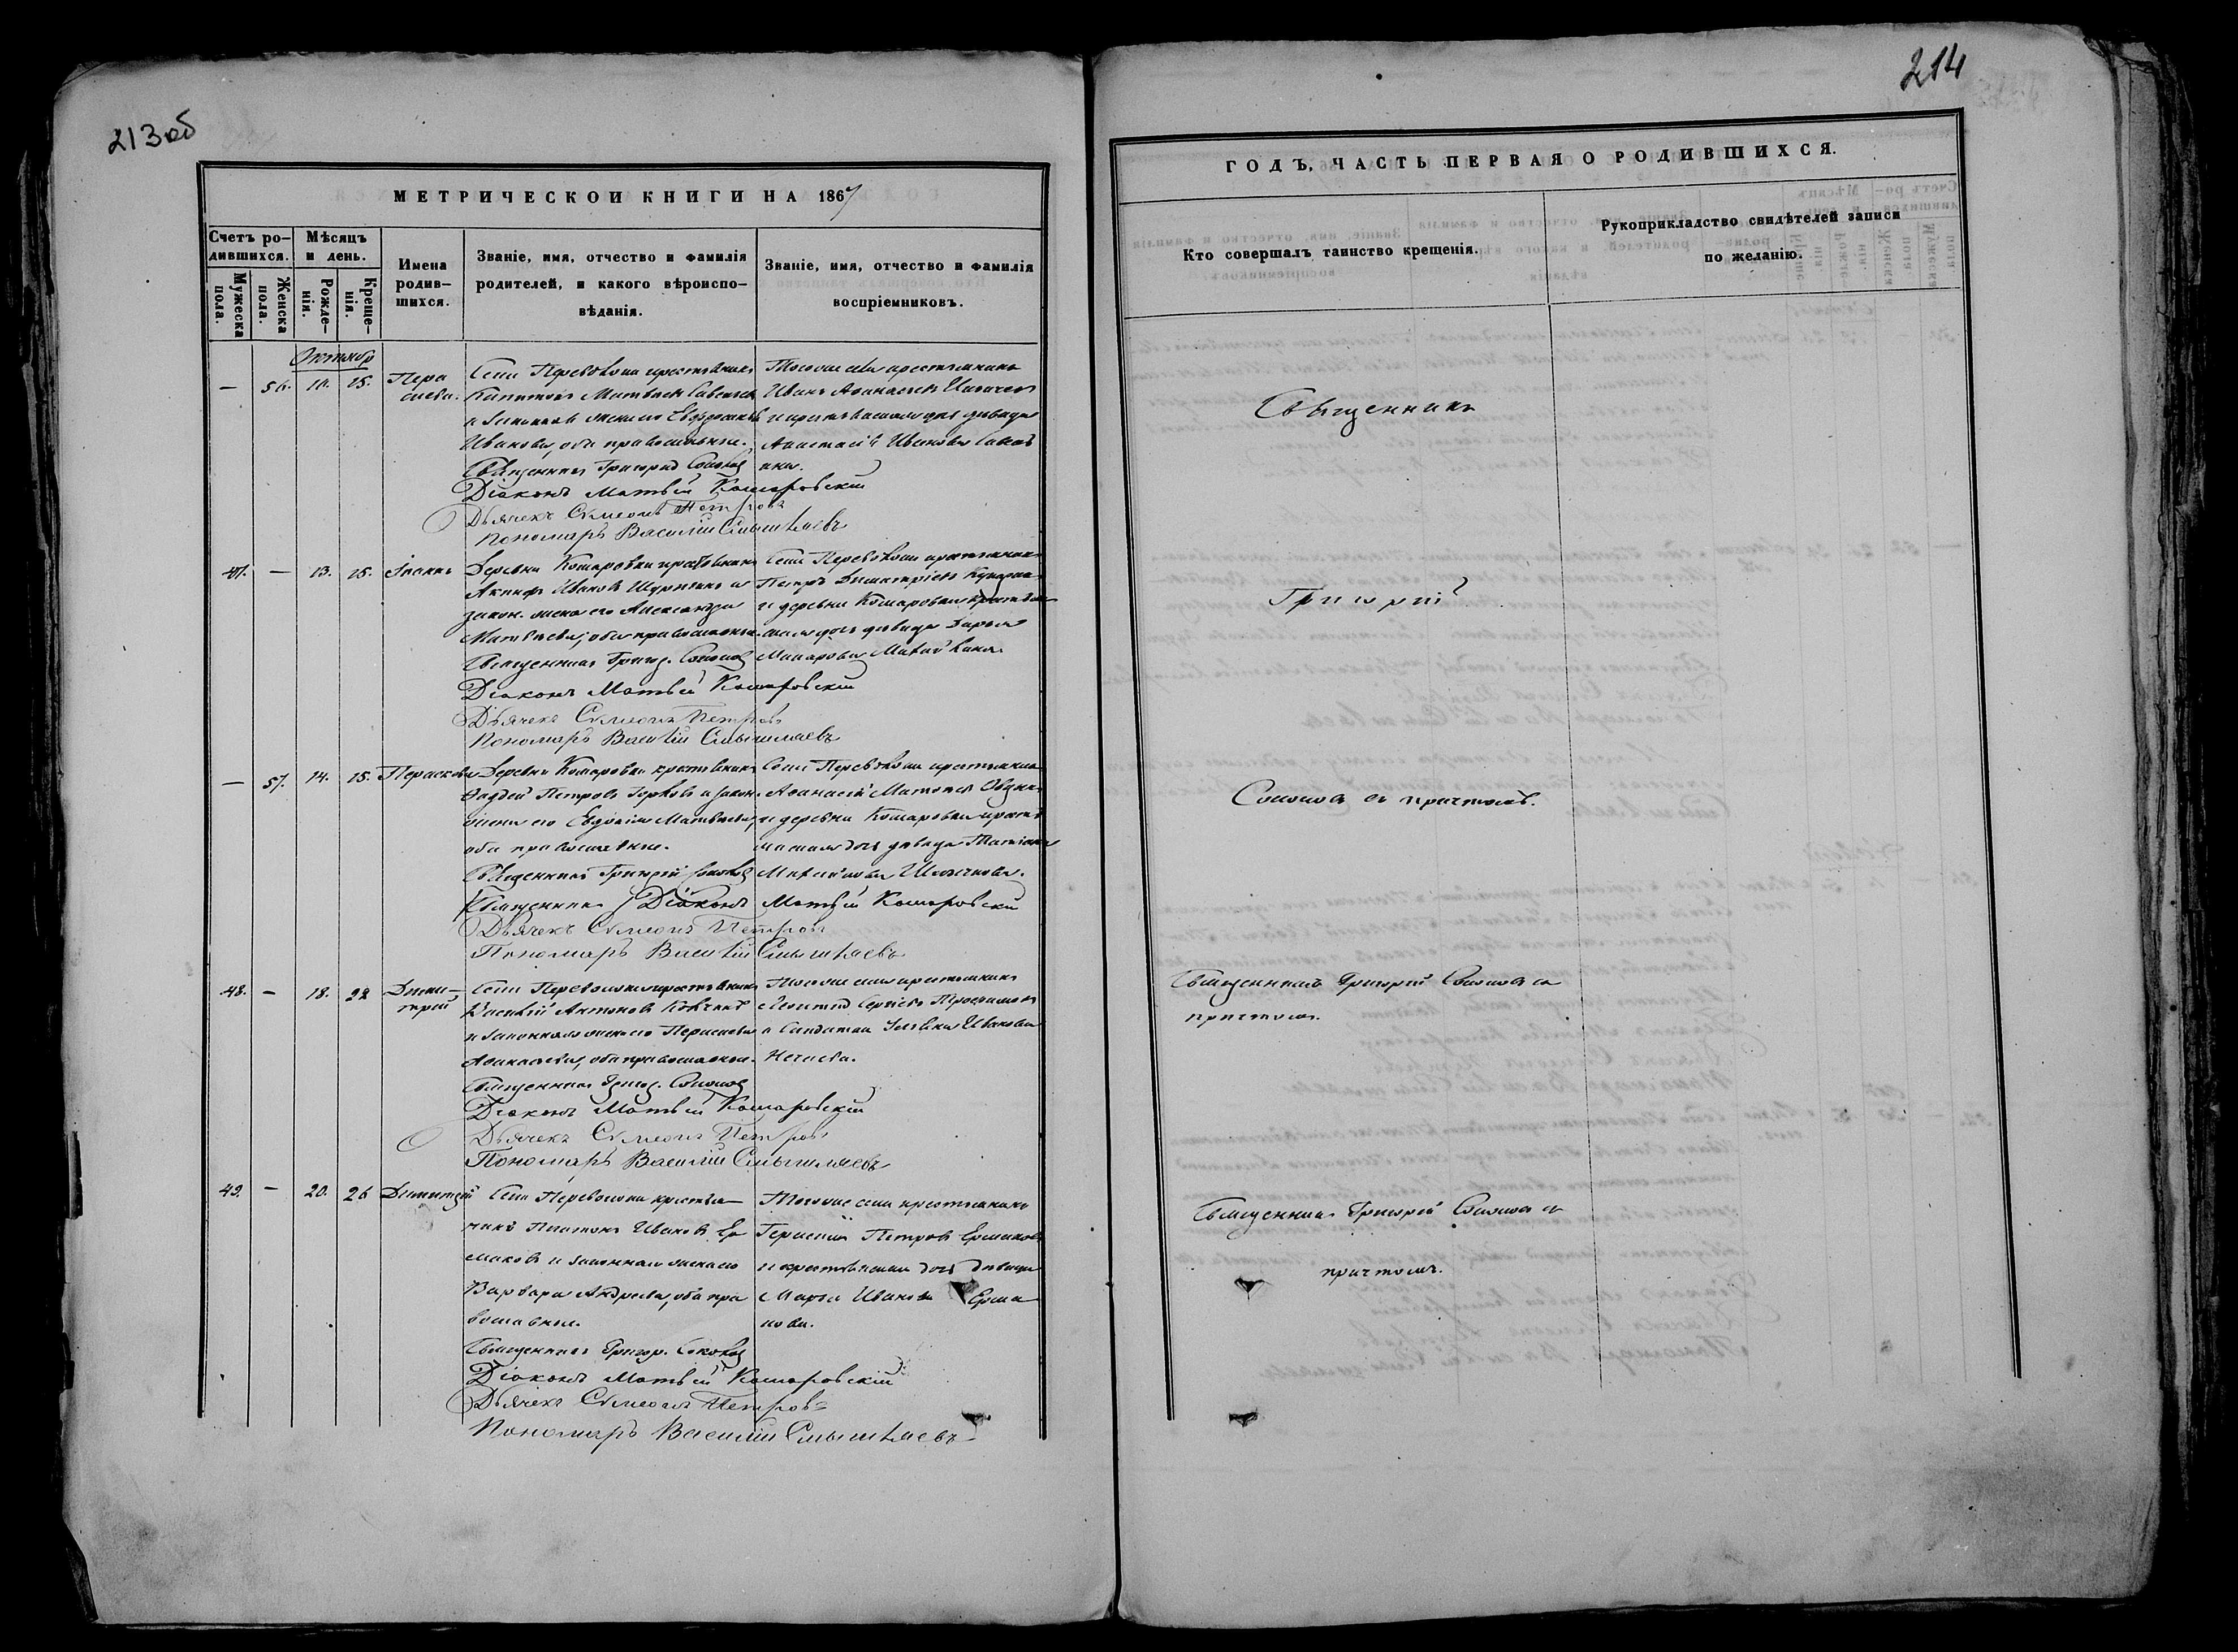 213 об
МЕТРИЧЕСКОЙ КНИГИ НА 1867
Счетъ ро-
дившихся.
Мужеска
пола.
Женска
пола.
Мѣсяцъ
и день.
Рожде-
нія.
Креще-
нія.
Имена
родив-
шихся.
Званіе, имя, отчество и фамилія
родителей, и какого вѣроиспо-
вѣданія.
Званіе, имя, отчество и фамилія
воспріемниковъ.
Октябрь
— 56. 10. 15. Пера
скева.
Села Переволоки крестьянинъ
Капитонъ Матвѣевъ
и законная жена его Евдокія
Иванова, оба православные.
Священникъ Григорій Соколовъ
Діаконъ Матвѣй Комаровскій
Дьячекъ Сѵмеонъ Петровъ
Пономарь Василій Смышляевъ
Тогоже села крестьянинъ
Иванъ Аѳанасьевъ
и крестьянская дочь дѣвица
Анастасія Иванова
47. — 13. 15. Іоаннъ
Деревни Комаровки крестьянинъ
Іакинфъ Ивановъ и
закон. жена его Александра
Матвѣева, оба православные.
Священникъ Григор. Соколовъ
Діаконъ Матвѣй Комаровскій
Дьячекъ Сѵмеонъ Петровъ
Пономарь Василій Смышляевъ
Села Переволоки крестьянинъ
Петръ Димитріевъ
и деревни Комаровки крестьян
ская дочь дѣвица Дарья
Макарова
— 57. 14. 15. Параскева
Деревни Комаровки крестьянинъ
Ѳаддей Петровъ и закон.
жена его Евдокія Матвѣева,
оба православные.
Священникъ Григорій Соколовъ
Священникъ Діаконъ Матвѣй Комаровскій
Дьячекъ Сѵмеонъ Петровъ
Пономарь Василій Смышляевъ
Села Переволоки крестьянинъ
Аѳанасій
и деревни Комаровки крестья
нская дочь дѣвица Татіана
48. — 18. 22 Дими-
трій
Села Переволоки крестьянинъ
Василій Антоновъ
и законная жена его Параскева
Аѳанасьева, оба православные.
Священникъ Григор. Соколовъ
Діаконъ Матвѣй Комаровскій
Дьячекъ Сѵмеонъ Петровъ
Пономарь Василій Смышляевъ
Тогоже села крестьянинъ
Леонтій Сергѣевъ
и Солдатка Иванова
49. — 20. 26 Димитрій
Села Переволоки крестья-
нинъ Платонъ Ивановъ Ер
маковъ и законная жена его
Варвара Андреева, оба пра
вославные.
Священникъ Григор. Соколовъ
Діаконъ Матвѣй Комаровскій
Дьячекъ Сѵмеонъ Петровъ
Пономарь Василій Смышляевъ
Тогоже села крестьянинъ
Герасимъ Петровъ Ермаковъ
и крестьянская дочь дѣвица
Марѳа Иванова Ерма
кова.
214
ГОДЪ, ЧАСТЬ ПЕРВАЯ О РОДИВШИХСЯ.
Кто совершалъ таинство крещенія.
Рукоприкладство свидѣтелей записи
по желанію.
Священникъ
Григорій
Соколовъ съ причтомъ.
Священникъ Григорій Соколовъ съ
причтомъ.
Священникъ Григорій Соколовъ съ
причтомъ.